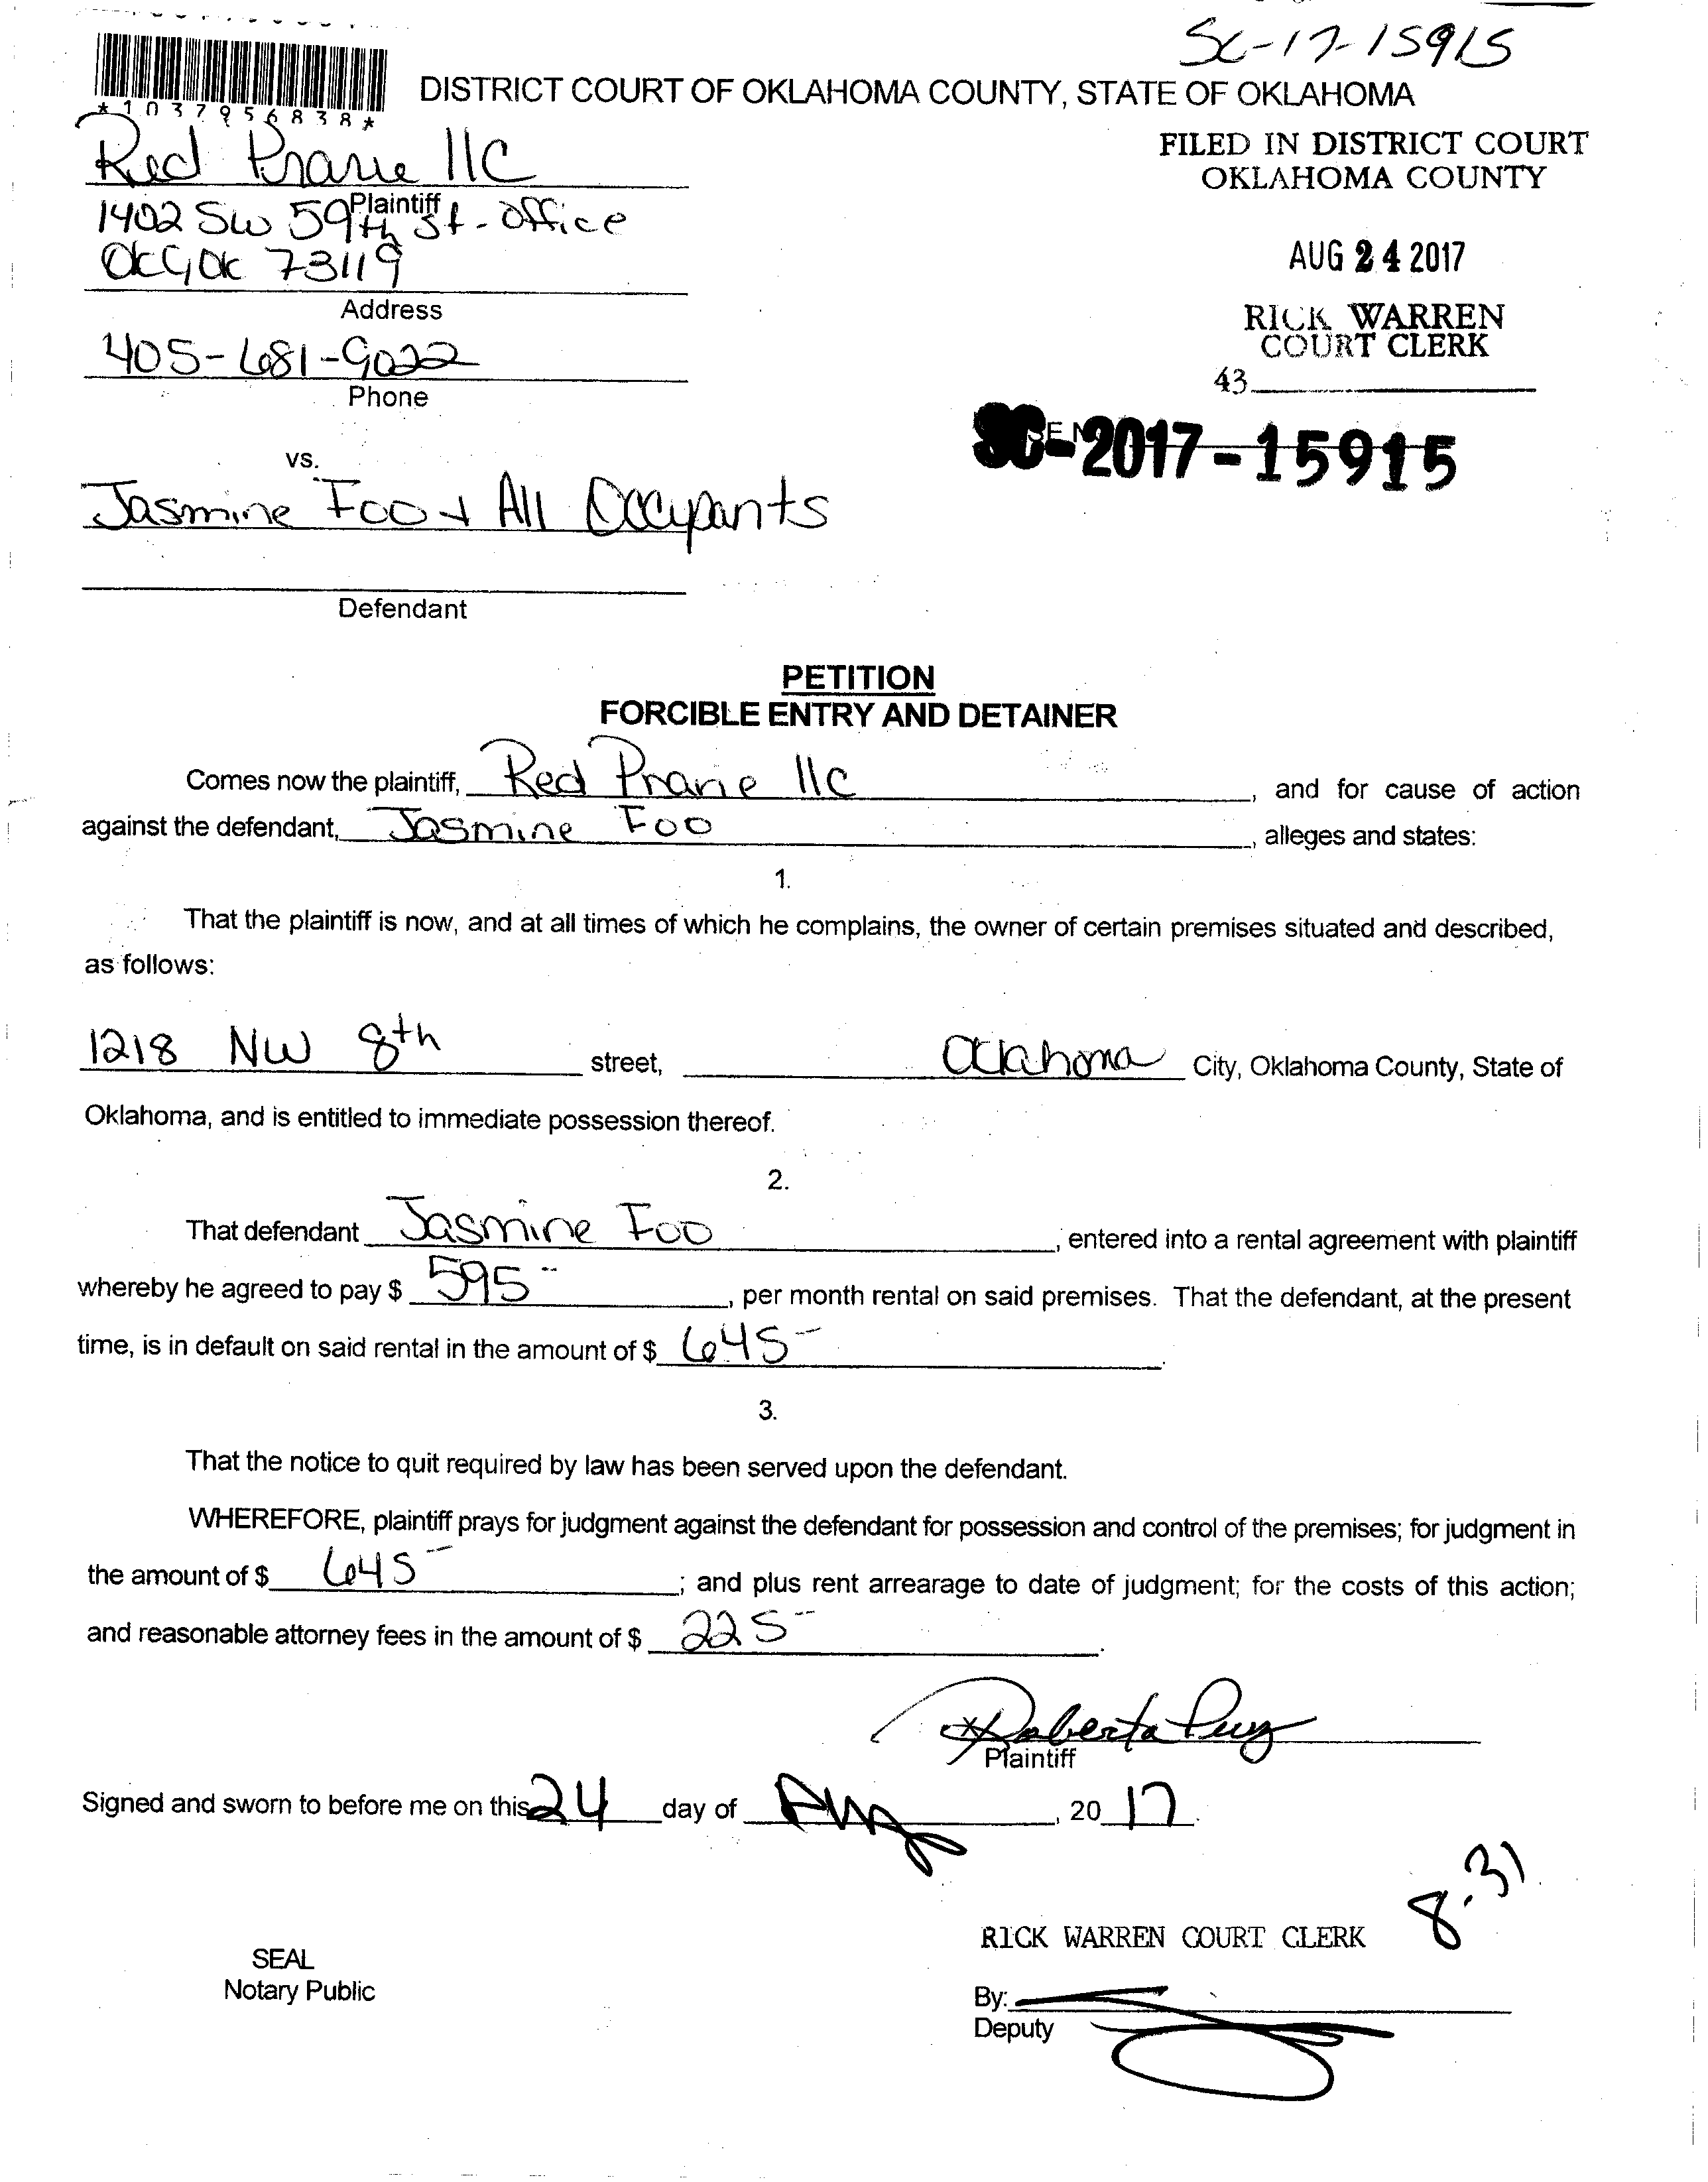 SC-17-15915
*1037956838*
DISTRICT COURT OF OKLAHOMA COUNTY, STATE OF OKLAHOMA
FILED IN DISTRICT COURT
OKLAHOMA COUNTY
AUG 24 2017
RICK WARREN
COURT CLERK
43
SC-2017-15915
Red Prarie llC
Plaintiff
1402 SW 59th St - Office
OKC, OK 73119
Address
405-681-9022
Phone
vs.
Jasmine Foo + All Occupants
Defendant
PETITION
FORCIBLE ENTRY AND DETAINER
Comes now the plaintiff, Red Prarie llc, and for cause of action
against the defendant, Jasmine Foo, alleges and states:
1.
That the plaintiff is now, and at all times of which he complains, the owner of certain premises situated and described,
as follows:
1218 NW 8th street, Oklahoma City, Oklahoma County, State of
Oklahoma, and is entitled to immediate possession thereof.
2.
That defendant Jasmine Foo, entered into a rental agreement with plaintiff
whereby he agreed to pay $ 595-, per month rental on said premises. That the defendant, at the present
time, is in default on said rental in the amount of $ 645-.
3.
That the notice to quit required by law has been served upon the defendant.
WHEREFORE, plaintiff prays for judgment against the defendant for possession and control of the premises; for judgment in
the amount of $ 645-; and plus rent arrearage to date of judgment; for the costs of this action;
and reasonable attorney fees in the amount of $ 225-.
Roberta
Plaintiff
Signed and sworn to before me on this 24 day of Aug, 20 17.
8-31
RICK WARREN COURT CLERK
SEAL
Notary Public
By:
Deputy